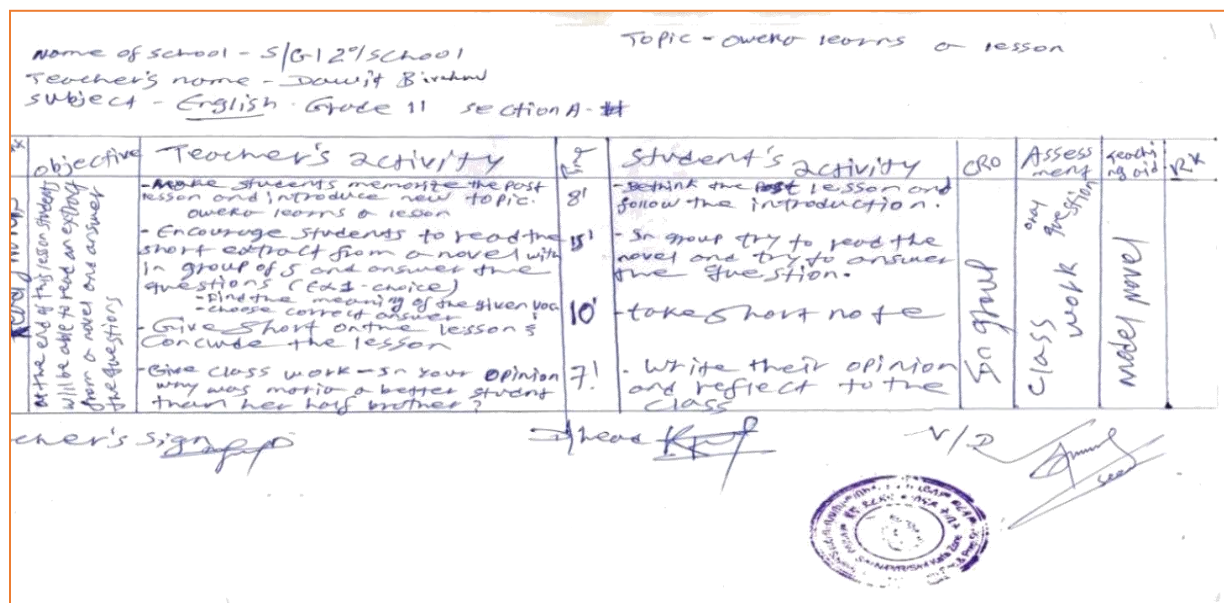 Name of school - S/G/ 2º/ School
Topic - Oweka learns a lesson
Teacher's name - Dawit
Subject - English Grade 11 section A-
objective
Teacher's activity
Student's activity
CRO
Assess
ment
teachi
ng aid
RK
At the end of this lesson students
will be able to read an extract
from a novel and answer
the questions
- Make students memorize the past
lesson and introduce new topic.
Oweka learns a lesson
8'
- Rethink the past lesson and
follow the introduction.
- Encourage students to read the
short extract from a novel with
in group of 5 and answer the
questions (Ex1-choice)
- Find the meaning of the given voc
- choose correct answer
15'
- In group try to read the
novel and try to answer
the question.
- Give short on the lesson &
Concude the lesson
10'
- take short note
- Give class work - In your opinion
why was maria a better student
than her half brother?
7'
- Write their opinion
and reflect to the
class
In group
Class work
oral question
model novel
cher's sign
D/head
V/D